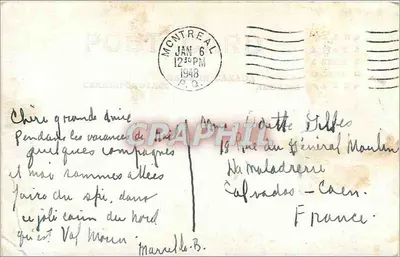 MONTREAL
JAN 6
12 30 PM
1948
P. Q.
Chère grande amie
Pendant les vacances de Noël
quelques compagnes
et moi sommes allées
faire du ski, dans
ce joli coin du Nord
qu'est Val Morin.
Marcelle B.
Mme Odette
18 Rue du Général Moulin
La Maladrerie
Calvados - Caen.
France.
CRAPHIL